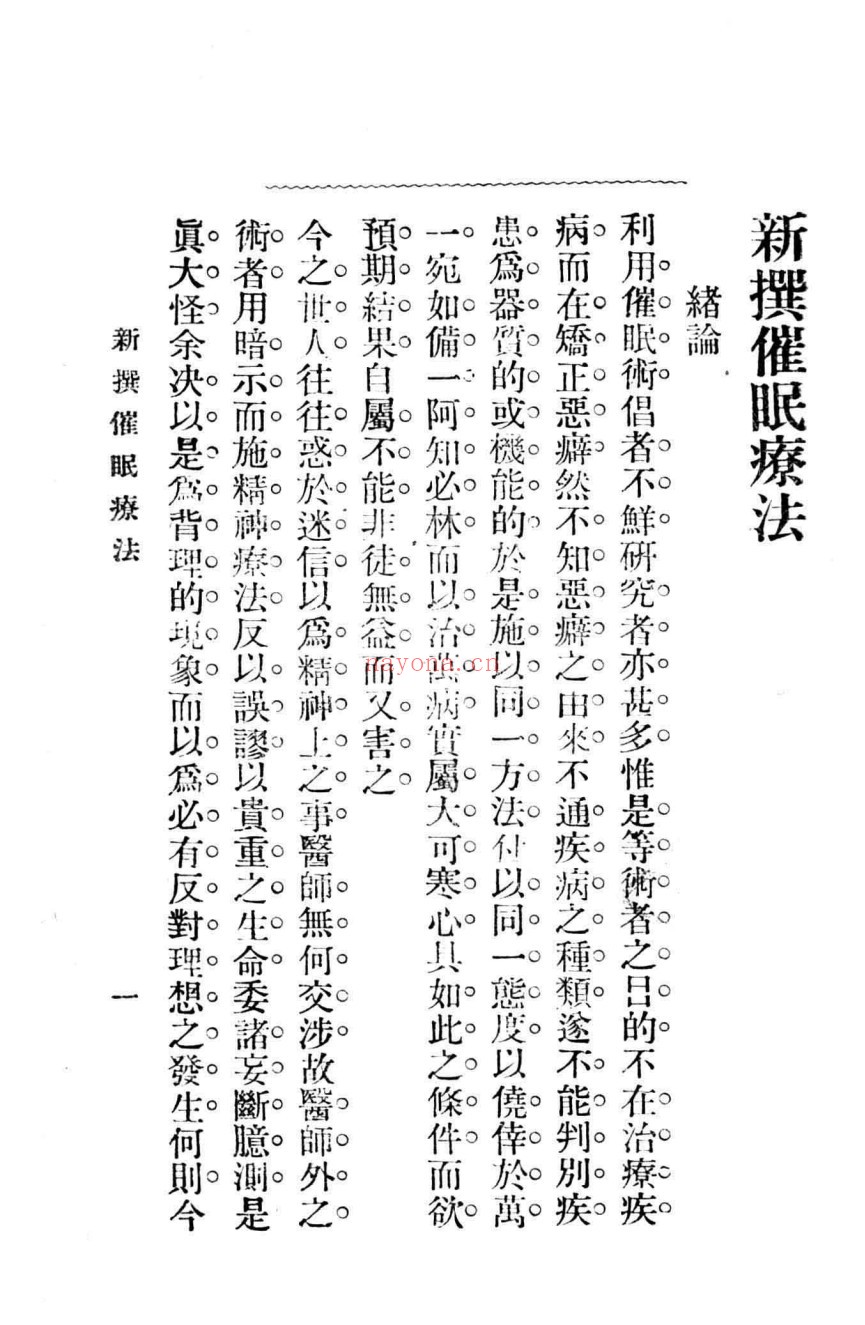 新撰催眠療法
緒論
利用催眠術倡者不鮮研究者亦甚多惟是等術者之目的不在治療疾
病而在矯正惡癖然不知惡癖之由來不通疾病之種類遂不能判別疾
患爲器質的或機能的於是施以同一方法付以同一態度以僥倖於萬
一宛如備一阿知必林而以治萬病實屬大可寒心具如此之條件而欲
預期結果自屬不能非徒無益而又害之
今之世人往往惑於迷信以爲精神上之事醫師無何交涉故醫師外之
術者用暗示而施精神療法反以誤謬以貴重之生命委諸妄斷臆測是
眞大怪余決以是爲背理的現象而以爲必有反對理想之發生何則今
新撰催眠療法
一
nayona.cn